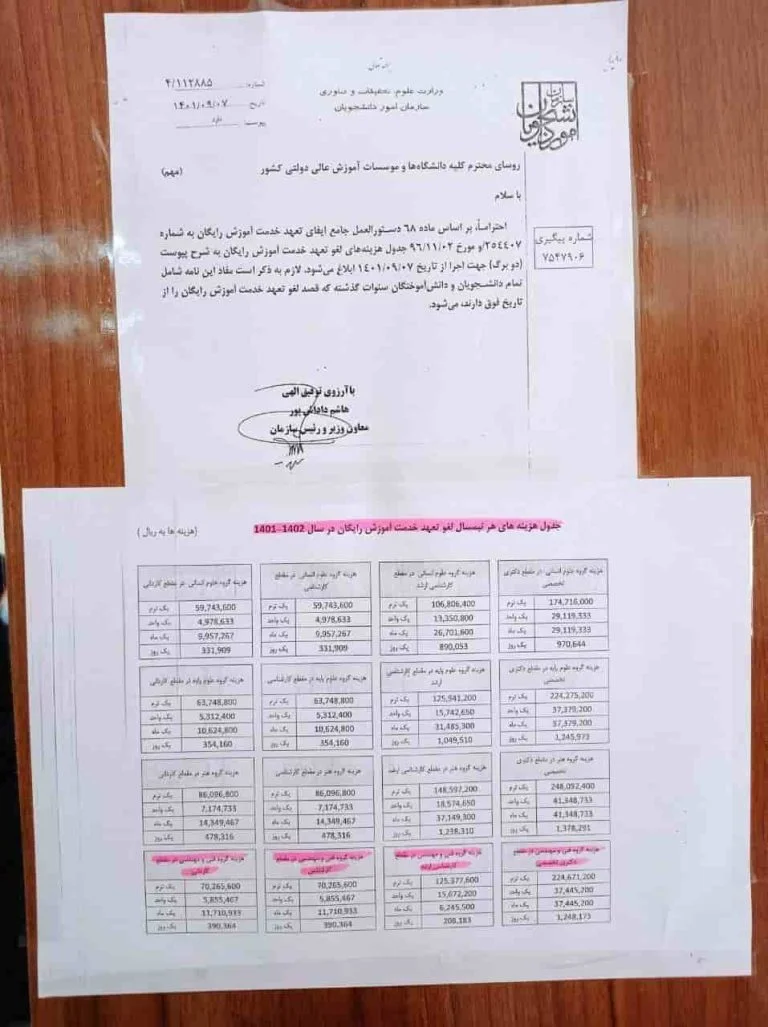 شماره: ۴/۱۱۲۸۸۵
تاریخ: ۱۴۰۱/۰۹/۰۷
پیوست: دارد
وزارت علوم، تحقیقات و فناوری
سازمان امور دانشجویان
سازمان امور دانشجویان
روسای محترم کلیه دانشگاه‌ها و موسسات آموزش عالی دولتی کشور (مهم)
با سلام
احتراماً، بر اساس ماده ۶۸ دستورالعمل جامع ایفای تعهد خدمت آموزش رایگان به شماره
۲۵۴۴۰۷/و مورخ ۹۶/۱۱/۰۲ جدول هزینه‌های لغو تعهد خدمت آموزش رایگان به شرح پیوست
(دو برگ) جهت اجرا از تاریخ ۱۴۰۱/۰۹/۰۷ ابلاغ می‌شود. لازم به ذکر است مفاد این نامه شامل
تمام دانشجویان و دانش‌آموختگان سنوات گذشته که قصد لغو تعهد خدمت آموزش رایگان را از
تاریخ فوق دارند، می‌شود.
شماره پیگیری
۷۵۴۷۹۰۶
با آرزوی توفیق الهی
هاشم داداش پور
معاون وزیر و رئیس سازمان
جدول هزینه های هر نیمسال لغو تعهد خدمت آموزش رایگان در سال 1402-1401 (هزینه ها به ریال)
هزینه گروه علوم انسانی در مقطع دکتری
تخصصی
یک ترم 174,716,000
یک واحد 29,119,333
یک ماه 29,119,333
یک روز 970,644
هزینه گروه علوم انسانی در مقطع
کارشناسی ارشد
یک ترم 106,806,400
یک واحد 13,350,800
یک ماه 26,701,600
یک روز 890,053
هزینه گروه علوم انسانی در مقطع
کارشناسی
یک ترم 59,743,600
یک واحد 4,978,633
یک ماه 9,957,267
یک روز 331,909
هزینه گروه علوم انسانی در مقطع کاردانی
یک ترم 59,743,600
یک واحد 4,978,633
یک ماه 9,957,267
یک روز 331,909
هزینه گروه علوم پایه در مقطع دکتری
تخصصی
یک ترم 224,275,200
یک واحد 37,379,200
یک ماه 37,379,200
یک روز 1,245,973
هزینه گروه علوم پایه در مقطع کارشناسی
ارشد
یک ترم 125,941,200
یک واحد 15,742,650
یک ماه 31,485,300
یک روز 1,049,510
هزینه گروه علوم پایه در مقطع کارشناسی
یک ترم 63,748,800
یک واحد 5,312,400
یک ماه 10,624,800
یک روز 354,160
هزینه گروه علوم پایه در مقطع کاردانی
یک ترم 63,748,800
یک واحد 5,312,400
یک ماه 10,624,800
یک روز 354,160
هزینه گروه هنر در مقطع دکتری
تخصصی
یک ترم 248,092,400
یک واحد 41,348,733
یک ماه 41,348,733
یک روز 1,378,291
هزینه گروه هنر در مقطع کارشناسی ارشد
یک ترم 148,597,200
یک واحد 18,574,650
یک ماه 37,149,300
یک روز 1,238,310
هزینه گروه هنر در مقطع کارشناسی
یک ترم 86,096,800
یک واحد 7,174,733
یک ماه 14,349,467
یک روز 478,316
هزینه گروه هنر در مقطع کاردانی
یک ترم 86,096,800
یک واحد 7,174,733
یک ماه 14,349,467
یک روز 478,316
هزینه گروه فنی و مهندسی در مقطع
دکتری تخصصی
یک ترم 224,671,200
یک وقت 37,445,200
یک ماه 37,445,200
یک روز 1,248,173
هزینه گروه فنی و مهندسی در مقطع
کارشناسی ارشد
یک ترم 125,377,600
یک واحد 15,672,200
یک ماه 6,245,500
یک روز 208,183
هزینه گروه فنی و مهندسی در مقطع
کارشناسی
یک ترم 70,265,600
یک واحد 5,855,467
یک ماه 11,710,933
یک روز 390,364
هزینه گروه فنی و مهندسی در مقطع
کاردانی
یک ترم 70,265,600
یک واحد 5,855,467
یک ماه 11,710,933
یک روز 390,364